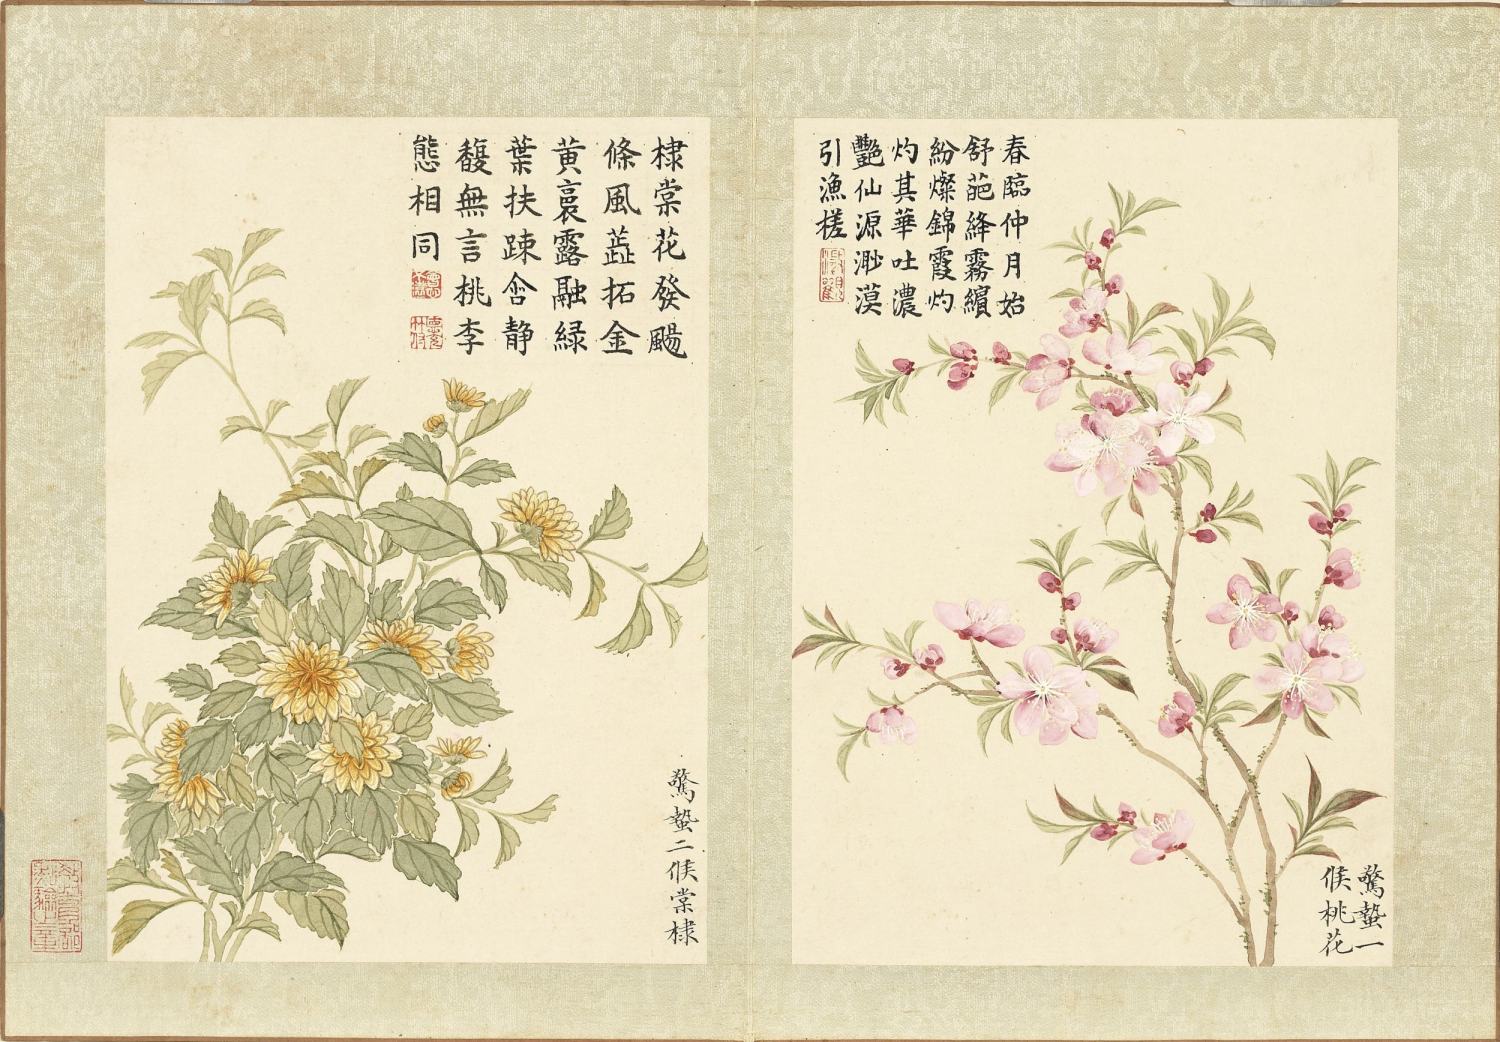 春臨仲月始
舒葩絳霧繽
紛燦錦霞灼
灼其華吐濃
艷仙源渺漠
引漁槎
驚蟄一
候桃花
棣棠花發颺
條風蕋拓金
黄裛露融緑
葉扶踈含静
馥無言桃李
態相同
驚蟄二候棠棣